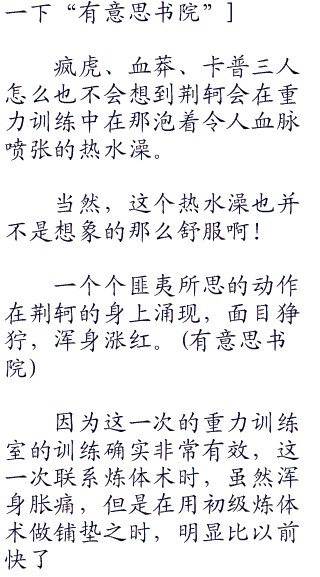 一下“有意思书院”]
疯虎、血莽、卡普三人
怎么也不会想到荆轲会在重
力训练中在那泡着令人血脉
喷张的热水澡。
当然，这个热水澡也并
不是想象的那么舒服啊！
一个个匪夷所思的动作
在荆轲的身上涌现，面目狰
狞，浑身涨红。(有意思书
院)
因为这一次的重力训练
室的训练确实非常有效，这
一次联系炼体术时，虽然浑
身胀痛，但是在用初级炼体
术做铺垫之时，明显比以前
快了